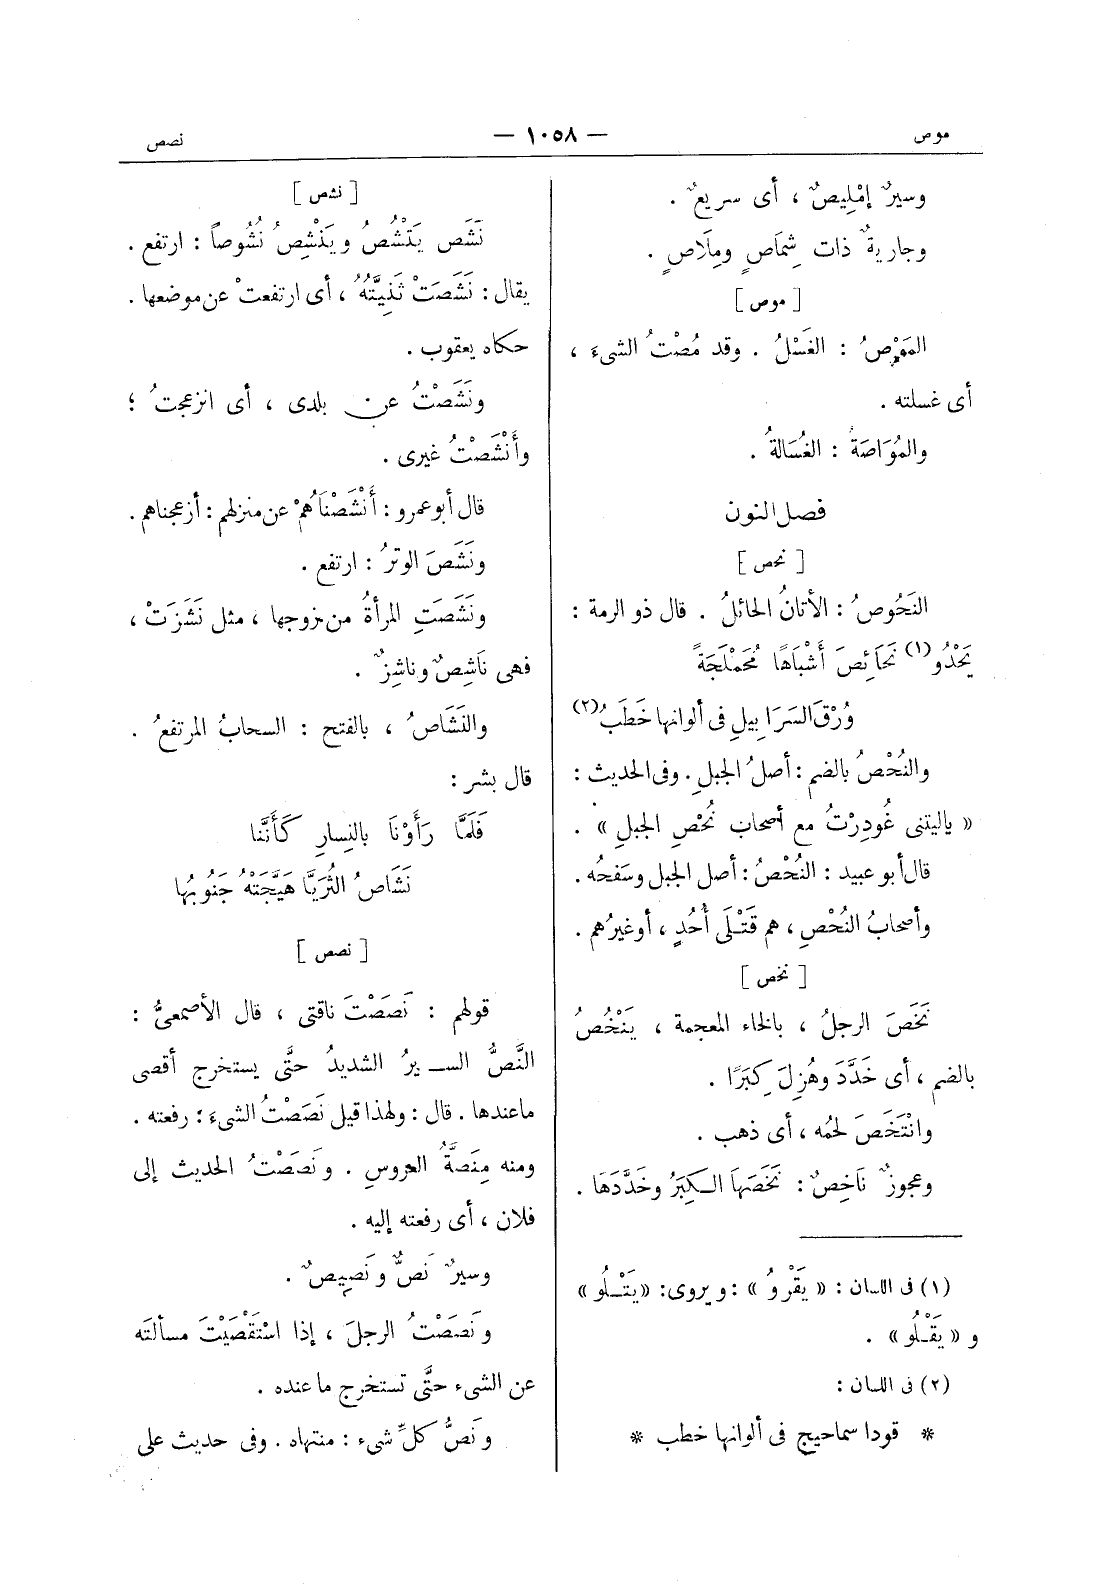 موص
— ١٠٥٨ —
نصص
وسيرٌ إمْلِيصٌ ، أى سريعٌ .
وجاريةٌ ذات شِمَاصٍ ومِلَاصٍ .
[ موص ]
المَوْصُ : الغَسْلُ . وقد مُصْتُ الشىءَ ،
أى غسلته .
والمُوَاصَةُ : الغُسَالةُ .
فصل النون
[ نحص ]
النَحُوصُ : الأتانُ الحائلُ . قال ذو الرمة :
يَحْدُو(١) نَحَائِصَ أَشْبَاهًا مُحَمْلَجَةً
وُرْقَ السَرَابِيلِ فى ألوانها خَطَبُ(٢)
والنُحْصُ بالضم : أصلُ الجبلِ . وفى الحديث :
« ياليتنى غُودِرْتُ مع أصحاب نُحْصِ الجبلِ » .
قال أبو عبيد : النُحْصُ : أصل الجبل وسَفحُه .
وأصحابُ النُحْصِ ، هم قَتْلَى أُحُدٍ ، أو غيرُهم .
[ نخص ]
نَخَصَ الرجلُ ، بالخاء المعجمة ، يَنْخُصُ
بالضم ، أى خَدَّدَ وهُزِلَ كِبَرًا .
وانْتَخَصَ لحمُه ، أى ذهب .
وعجوزٌ نَاخِصٌ : نَخَصَهَا الكِبَرُ وخَدَّدَهَا .
(١) فى اللسان : « يَقْرُو » : ويروى : « يَتْلُو »
و « يَقْلُو » .
(٢) فى اللسان :
* قودا سماحيج فى ألوانها خطب *
[ نشص ]
نَشَص يَنْشُصُ ويَنْشِصُ نُشُوصاً : ارتفع .
يقال : نَشَصَتْ ثَنِيَّتُهُ ، أى ارتفعتْ عن موضعها .
حكاه يعقوب .
ونَشَصْتُ عن بلدى ، أى انزعجتُ ؛
وأَنْشَصْتُ غيرى .
قال أبو عمرو : أَنْشَصْنَاهُمْ عن منزلهم : أزعجناهم .
ونَشَصَ الوترُ : ارتفع .
ونَشَصَتِ المرأةُ من زوجها ، مثل نَشَزَتْ ،
فهى نَاشِصٌ وناشِزٌ .
والنَشَاصُ ، بالفتح : السحابُ المرتفعُ .
قال بشر :
فَلَمَّا رَأَوْنَا بالنِسارِ كَأَنَّنا
نَشَاصُ الثُرَيَّا هَيَّجَتْهُ جَنُوبُها
[ نصص ]
قولهم : نَصَصْتُ ناقتى ، قال الأصمعىُّ :
النَّصُّ السيرُ الشديدُ حتَّى يستخرج أقصى
ماعندها . قال : ولهذا قيل نَصَصْتُ الشىءَ ؛ رفعته .
ومنه مِنَصَّةُ العروسِ . ونَصَصْتُ الحديث إلى
فلان ، أى رفعته إليه .
وسيرٌ نَصٌّ ونَصِيصٌ .
ونَصَصْتُ الرجلَ ، إذا اسْتَقْصَيْتَ مسألتَه
عن الشىء حتَّى تستخرج ماعنده .
ونَصُّ كلِّ شىء : منتهاه . وفى حديث على